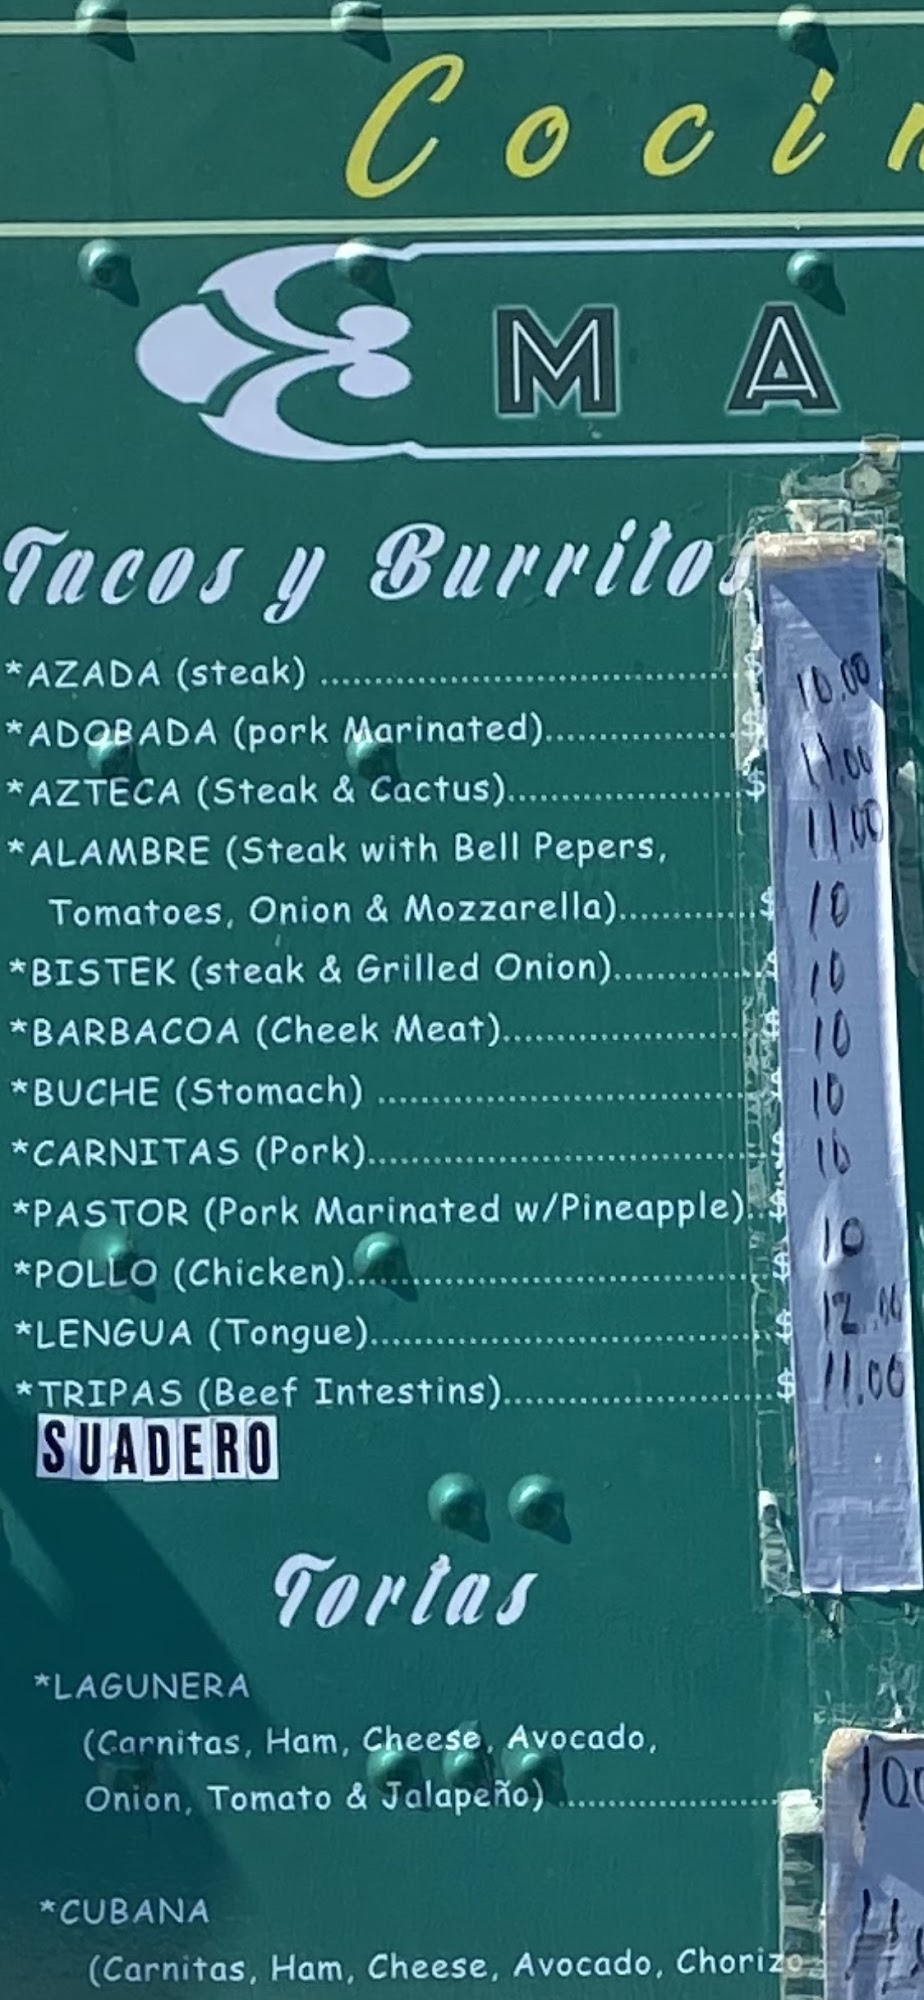 Cocin
MA
Tacos y Burritos
*AZADA (steak) ........................................ $ 10.00
*ADOBADA (pork Marinated).................... $ 11.00
*AZTECA (Steak & Cactus)........................ $ 11.00
*ALAMBRE (Steak with Bell Pepers,
Tomatoes, Onion & Mozzarella)............ $ 10
*BISTEK (steak & Grilled Onion)............. $ 10
*BARBACOA (Cheek Meat)....................... $ 10
*BUCHE (Stomach) ................................... $ 10
*CARNITAS (Pork)..................................... $ 10
*PASTOR (Pork Marinated w/Pineapple).. $ 10
*POLLO (Chicken)....................................... $
*LENGUA (Tongue)..................................... $ 12.00
*TRIPAS (Beef Intestins).......................... $ 11.00
SUADERO
Tortas
*LAGUNERA
(Carnitas, Ham, Cheese, Avocado,
Onion, Tomato & Jalapeño) ....................... 10
*CUBANA
(Carnitas, Ham, Cheese, Avocado, Chorizo